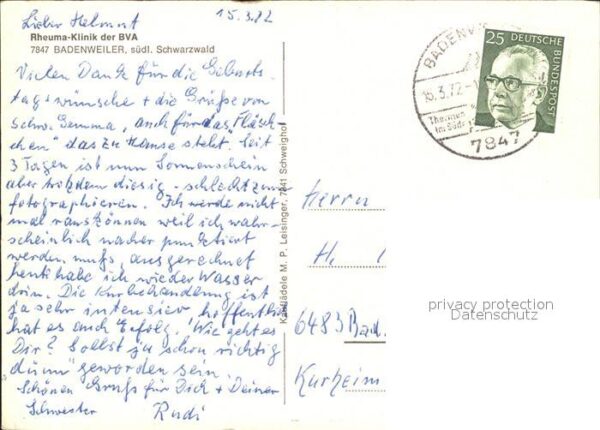 15.3.72
Lieber Helmut
Rheuma-Klinik der BVA
7847 BADENWEILER, südl. Schwarzwald
Vielen Dank für die Geburts-
tagswünsche + die Grüße von
Schw. Gemma, auch für das "Fläsch-
chen" das zu Hause steht. Seit
3 Tagen ist nun Sonnenschein
aber trotzdem diesig - schlecht zum
fotographieren. Ich werde nicht
mal raus können weil ich wahr-
scheinlich nacher punktiert
werden muß, ausgerechnet
heute habe ich wieder Wasser
drin. Die Kurbehandlung ist
ja sehr intensiv, hoffentlich
hat es auch Erfolg. Wie geht es
Dir? Sollst ja schon richtig
"dünn" geworden sein.
Schönen Gruß für Dich + Deine
Schwester Rudi
Kaufädele M. P. Leisinger, 7841 Schweighof
BADENW
15.3.72
Thermal
im Süd
7847
25 DEUTSCHE
BUNDESPOST
Herrn
H.
6483 Bad
Kurheim
privacy protection
Datenschutz